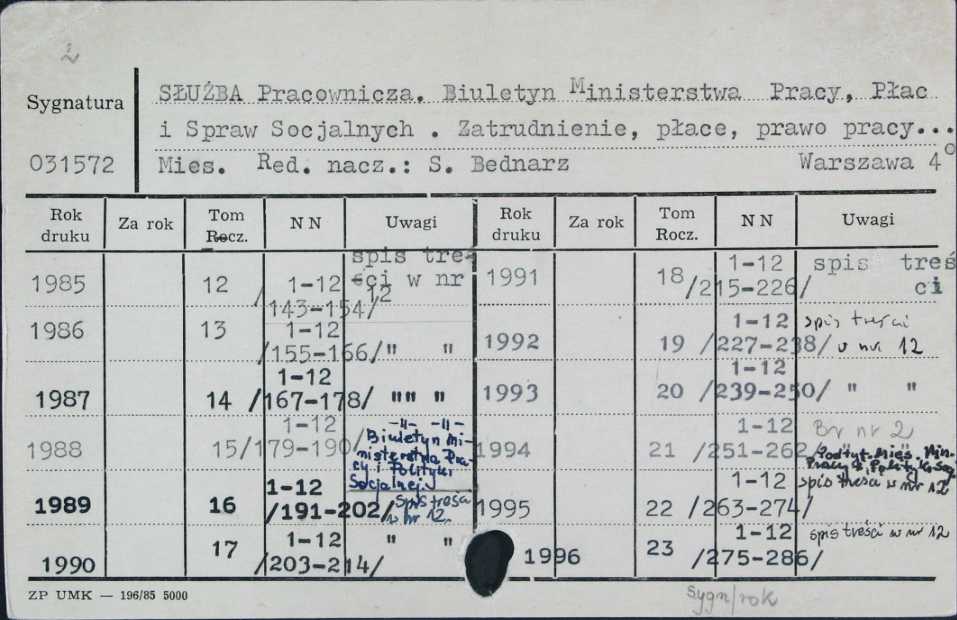 2
Sygnatura
031572
SŁUŻBA Pracownicza. Biuletyn Ministerstwa Pracy, Płac
i Spraw Socjalnych . Zatrudnienie, płace, prawo pracy...
Mies. Red. nacz.: S. Bednarz Warszawa 4°
Rok druku Za rok Tom Rocz. N N Uwagi Rok druku Za rok Tom Rocz. N N Uwagi
1985 12 1-12 /143-154/ spis treś ści w nr 12
1986 13 1-12 /155-166/ " "
1987 14 1-12 /167-178/ "" "
1988 15 1-12 /179-190/ -"- -"- Biuletyn Ministerstwa Pracy i Polityki Socjalnej.
1989 16 1-12 /191-202/ spis treści w nr 12.
1990 17 1-12 /203-214/ " "
1991 18 1-12 /215-226/ spis treś ci
1992 19 1-12 /227-238/ spis treści w nr 12
1993 20 1-12 /239-250/ " "
1994 21 1-12 /251-262/ Br nr 2 Podtyt. Mies. Min. Pracy i Polityki Soc. spis treści w nr 12
1995 22 1-12 /263-274/
1996 23 1-12 /275-286/ spis treści w nr 12
ZP UMK — 196/85 5000
sygn/rok